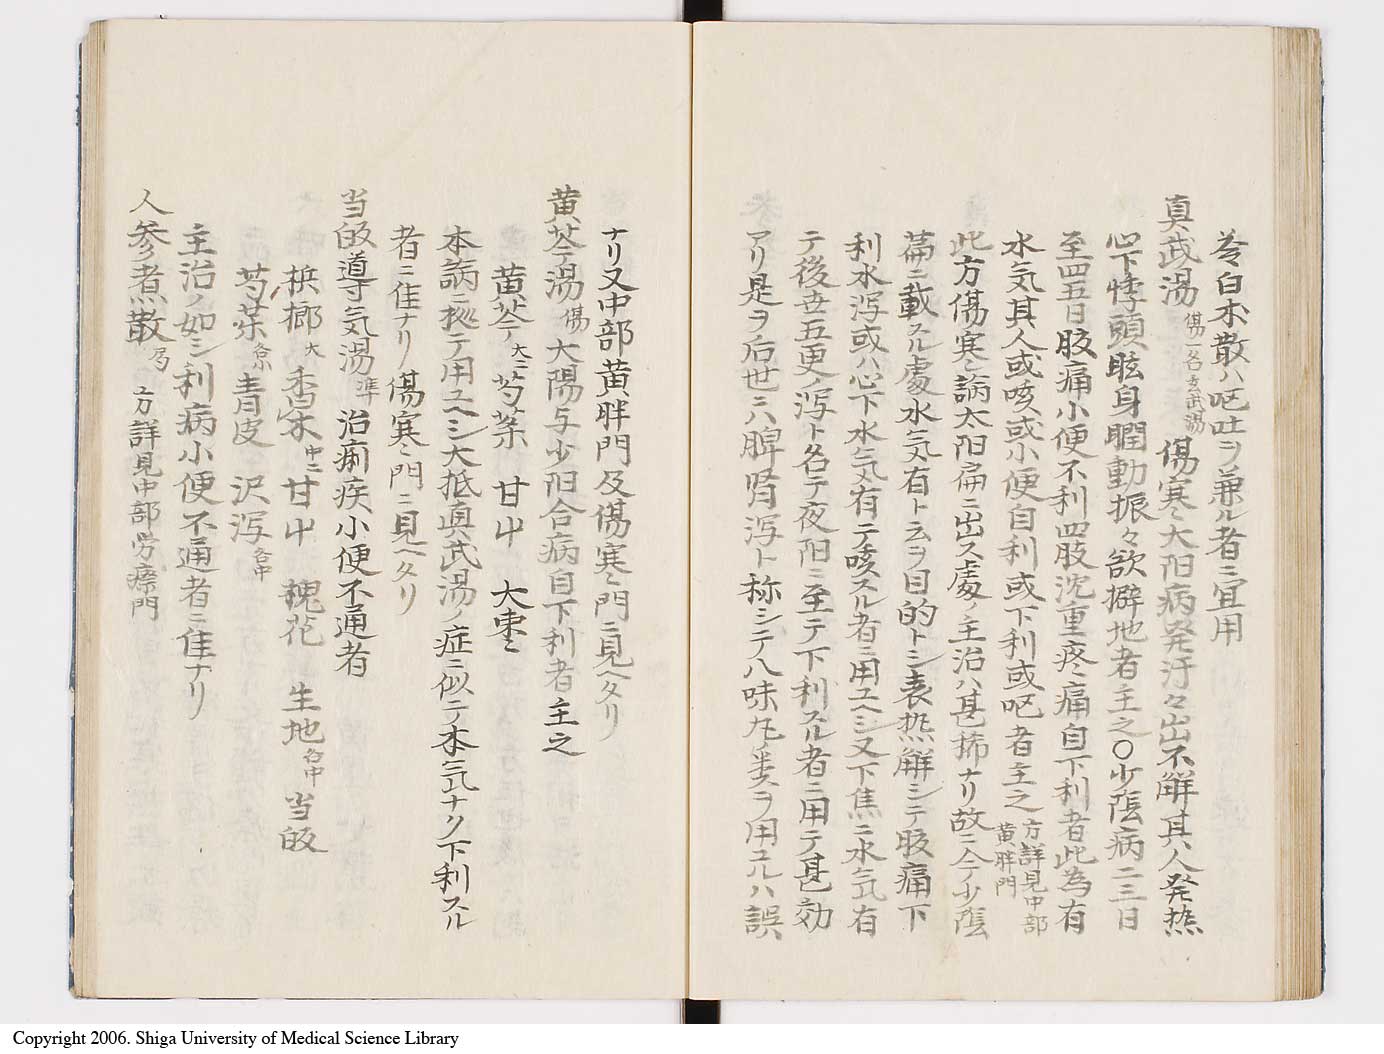 苓白朮散ハ呕吐ヲ兼ル者ニ宜用
真武湯 傷一名玄武湯 傷寒〻大阳病発汗々出不解其人発热
心下悸頭眩身瞤動振々欲擗地者主之〇少陰病二三日
至四五日腹痛小便不利四肢沈重疼痛自下利者此為有
水気其人或咳或小便自利或下利或呕者主之 方詳見中部黄胖門
此方傷寒〻論太阳扁ニ出ス處ノ主治ハ甚稀ナリ故ニ今少陰
萹ニ載スル處水気有ト云ヲ目的トシ表热解シテ腹痛下
利水瀉或ハ心下水気有テ咳スル者ニ用ユヘシ又下焦ニ水気有
テ後世五更ノ瀉ト名テ夜阳ニ至テ下利スル者ニ用テ甚効
アリ是ヲ后世ニハ脾腎瀉ト称シテ八味丸䒭ヲ用ユルハ誤
ナリ又中部黄胖門及傷寒〻門ニ見ヘタリ
黄芩湯 傷 大陽与少阳合病自下利者主之
黄芩 大二 芍薬 甘屮 大棗〻
本論ニ拠テ用ユヘシ大抵真武湯ノ症ニ似テ水気ナク下利スル
者ニ佳ナリ傷寒〻門ニ見ヘタリ
当皈導气湯 準 治痢疾小便不通者
梹榔 大 香 中二 甘屮 槐花 生地 各中 当皈
芍薬 青皮 沢瀉 各中
主治ノ如シ利病小便不通者ニ佳ナリ
人参煮散 局 方詳見中部労瘵門
Copyright 2006. Shiga University of Medical Science Library